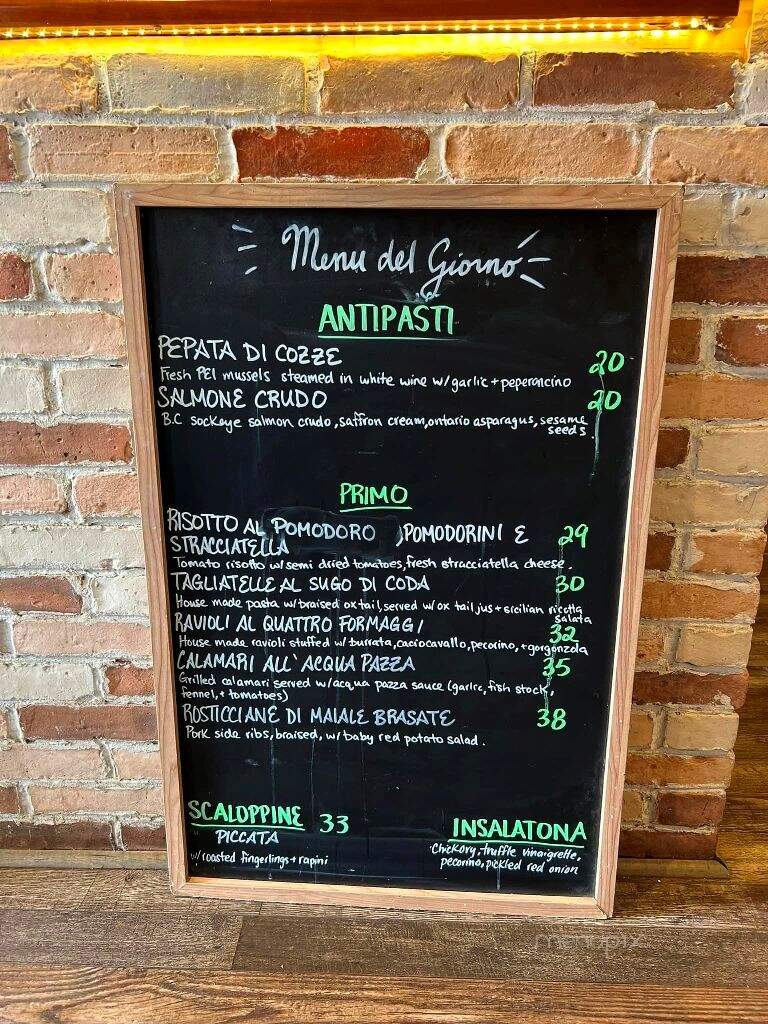 Menu del Giorno
ANTIPASTI
PEPATA DI COZZE 20
Fresh PEI mussels steamed in white wine w/garlic + peperoncino
SALMONE CRUDO 20
B.C sockeye salmon crudo, saffron cream, ontario asparagus, sesame
seeds.
PRIMO
RISOTTO AL POMODORO, POMODORINI E 29
STRACCIATELLA
Tomato risotto w/semi dried tomatoes, fresh stracciatella cheese.
TAGLIATELLE AL SUGO DI CODA 30
House made pasta w/braised oxtail, served w/ox tail jus + sicilian ricotta
salata
RAVIOLI AL QUATTRO FORMAGGI 32
House made ravioli stuffed w/burrata, caciocavallo, pecorino, + gorgonzola
CALAMARI ALL' ACQUA PAZZA 35
Grilled calamari served w/acqua pazza sauce (garlic, fish stock,
fennel, + tomatoes)
ROSTICCIANE DI MAIALE BRASATE 38
Pork side ribs, braised, w/baby red potato salad.
SCALOPPINE 33
PICCATA
w/roasted fingerlings + rapini
INSALATONA
Chickory, truffle vinaigrette,
pecorino, pickled red onion
menupix